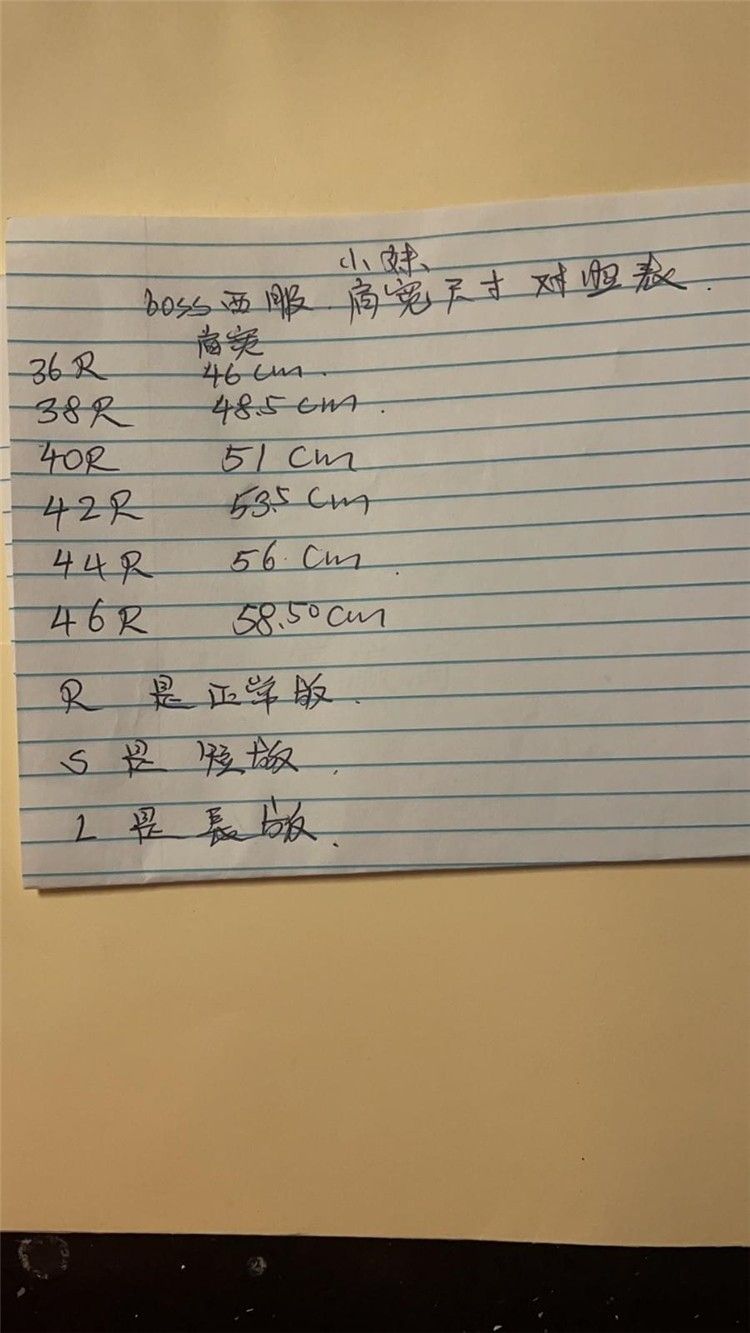 小妹
boss西服.肩宽尺寸对照表.
肩宽
36R 46cm.
38R 48.5cm.
40R 51cm
42R 53.5cm
44R 56.cm.
46R 58.50cm
R 是正常版.
S 是 短版.
L 是 長版.